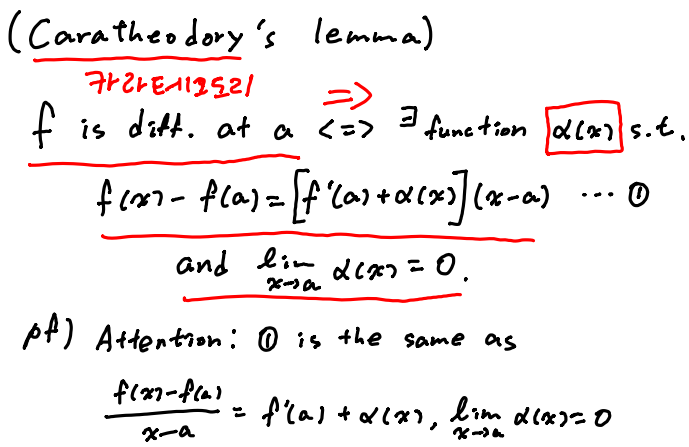 (Caratheodory's lemma)
카라테오도리 ⇒
f is diff. at a <=> ∃ function α(x) s.t.
f(x) - f(a) = [f'(a) + α(x)](x-a) ... ①
and lim_{x→a} α(x) = 0.
pf) Attention: ① is the same as
\frac{f(x)-f(a)}{x-a} = f'(a) + α(x), lim_{x→a} α(x) = 0